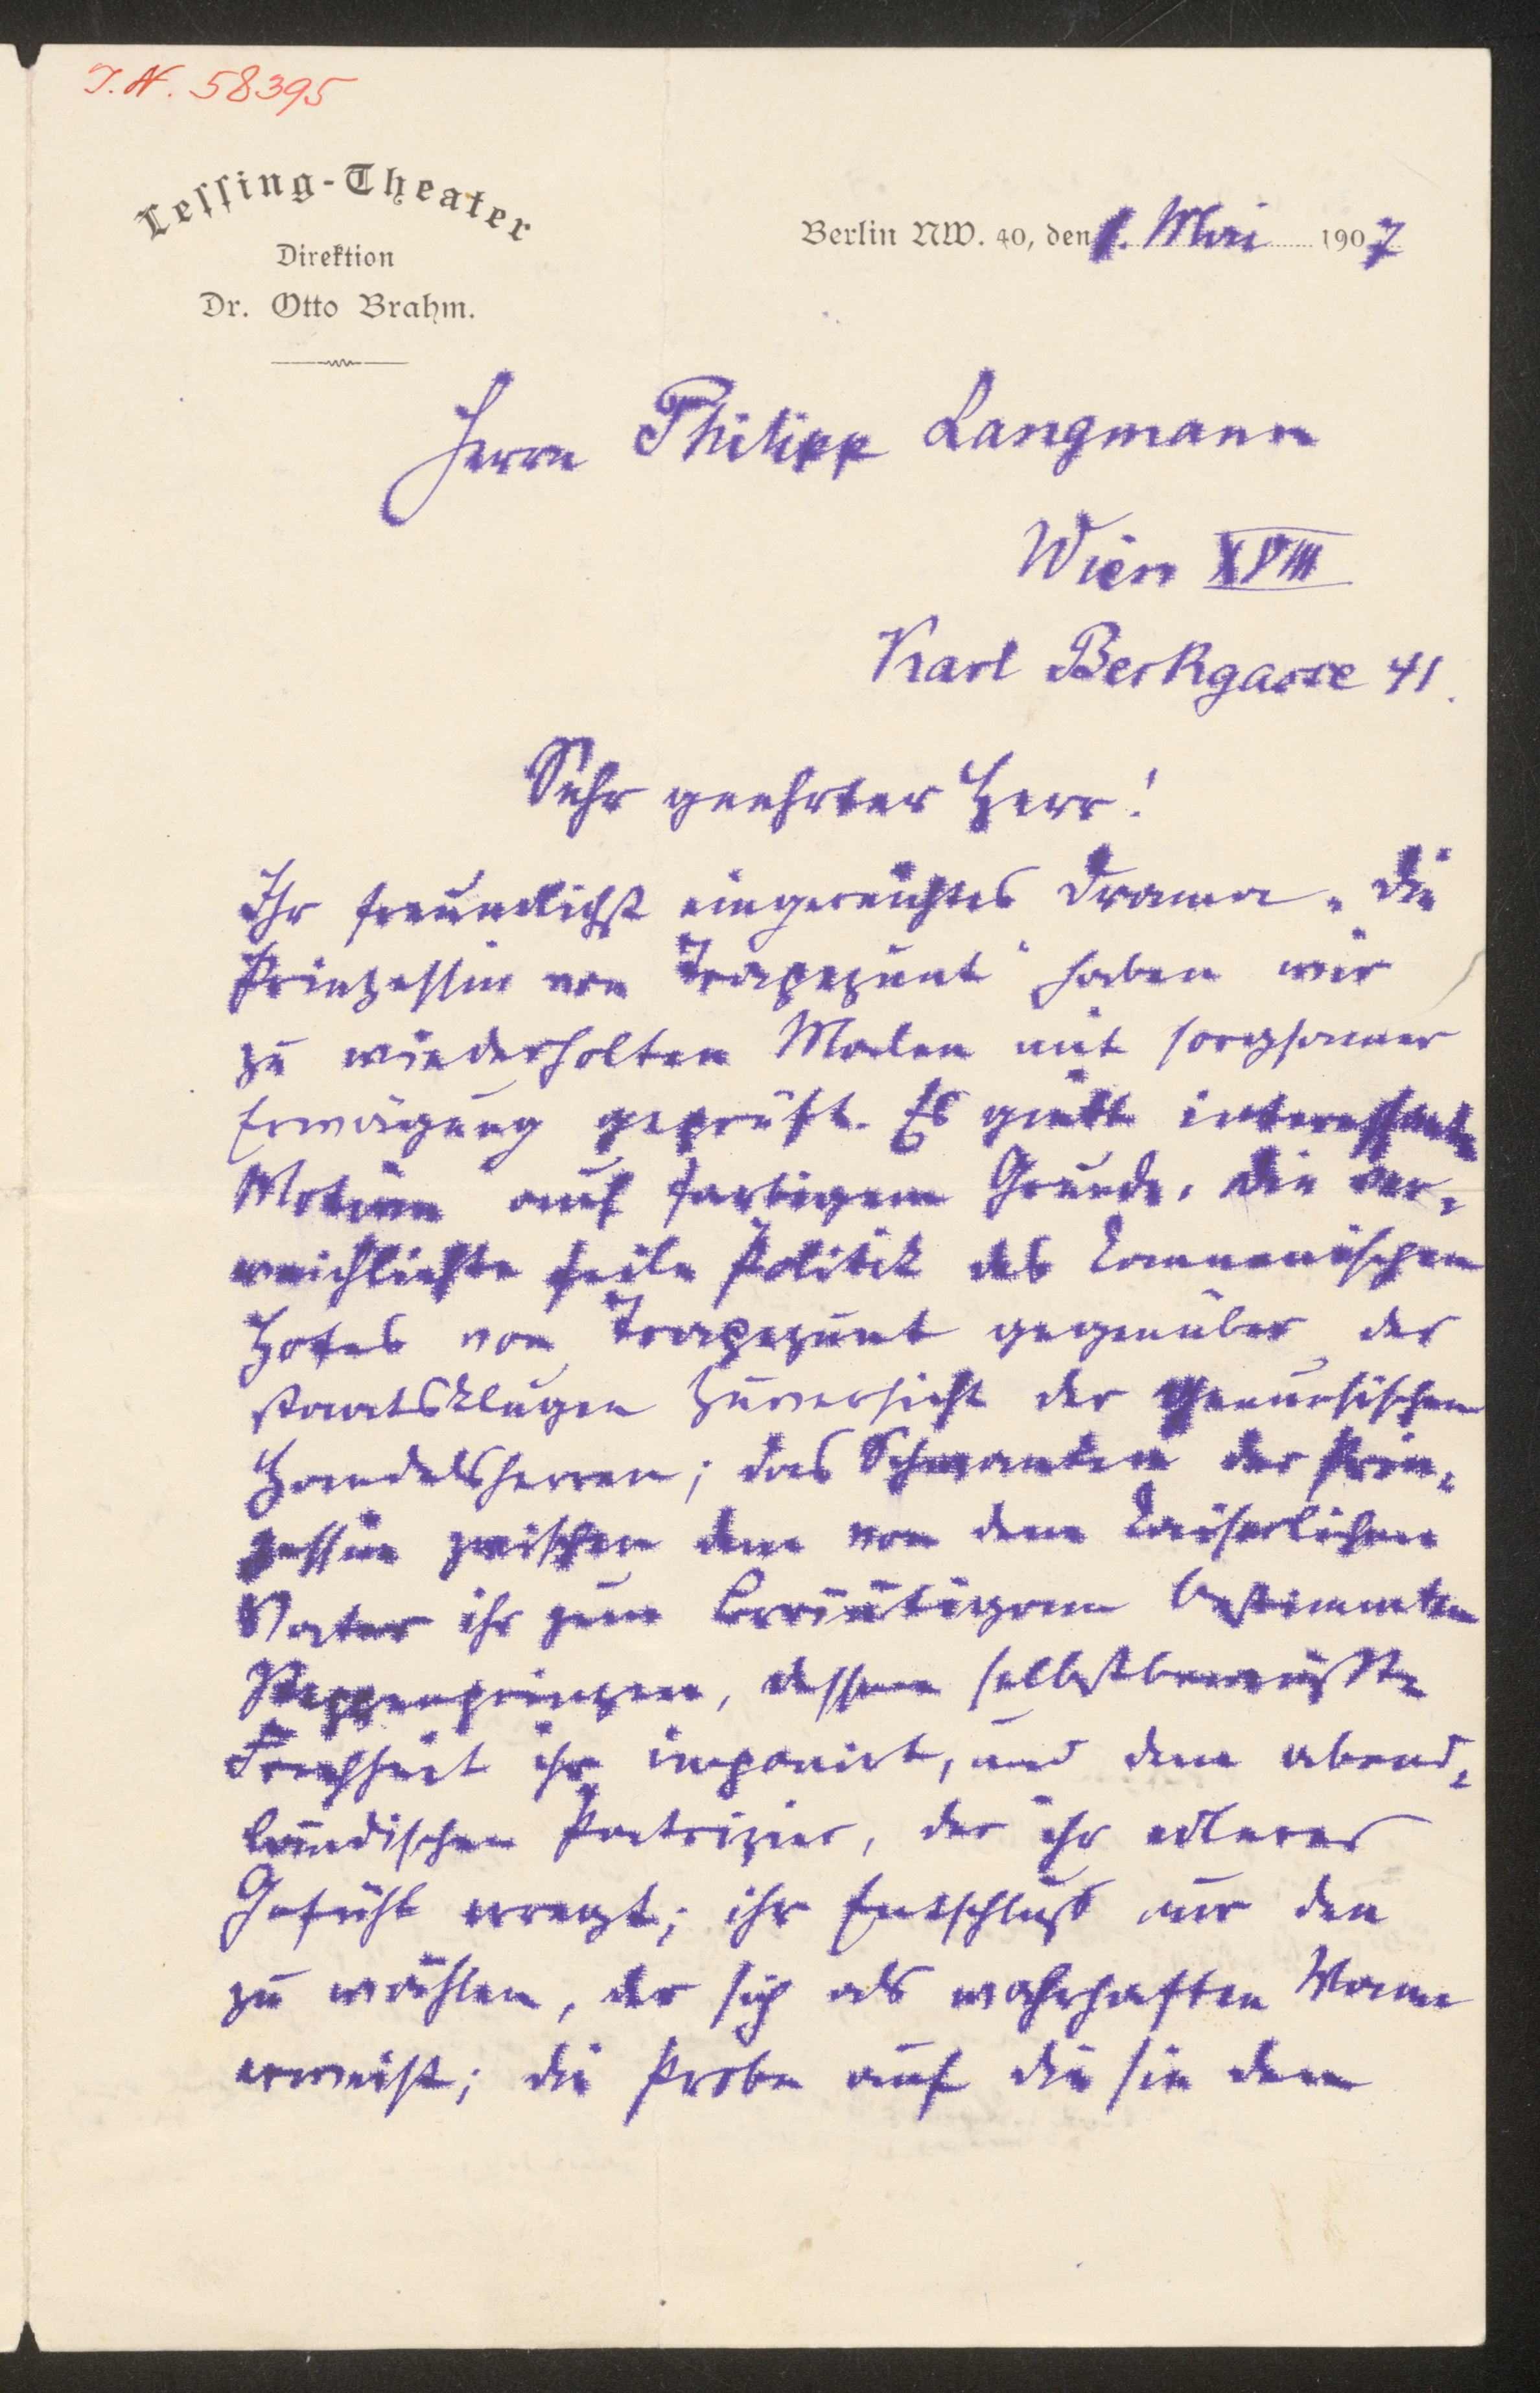 I.N. 58395
Lessing-Theater
Direktion
Dr. Otto Brahm.
Berlin NW. 40, den 1. Mai 1907
Herrn Philipp Langmann
Wien XVIII
Karl Beckgasse 41.
Sehr geehrter Herr!
Ihr freundlichst eingereichtes Drama „Die
Prinzessin von Trapezunt“ haben wir
zu wiederholten Malen mit sorgsamer
Erwägung geprüft. Es giebt interessante
Motive auf farbigem Grunde. Die ver-
weichlichte feile Politik des komnenischen
Hofes von Trapezunt gegenüber der
staatsklugen Zuversicht der Genuesischen
Handelsherren; das Schwanken der Prin-
zessin zwischen dem von dem kaiserlichen
Vater ihr zum Bräutigam bestimmten
Steppenprinzen, dessen selbstbewußte
Frechheit ihr imponirt, und dem abend-
ländischen Patrizier, der ihr edleres
Gefühl erregt; ihr Entschluß nur den
zu wählen, der sich als wahrhaften Mann
erweist; die Probe auf die sie den